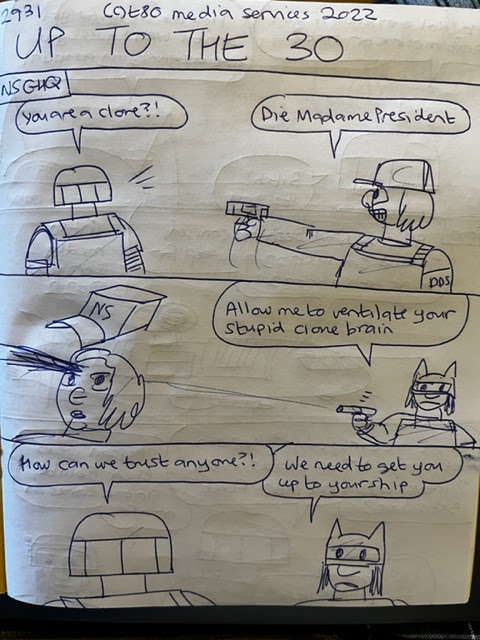 2931 (C)t80 media services 2022
UP TO THE 30
NSGHQ
You are a clone?!
Die Madame President
DDS
NS
Allow me to ventilate your
stupid clone brain
How can we trust anyone?!
We need to get you
up to your ship